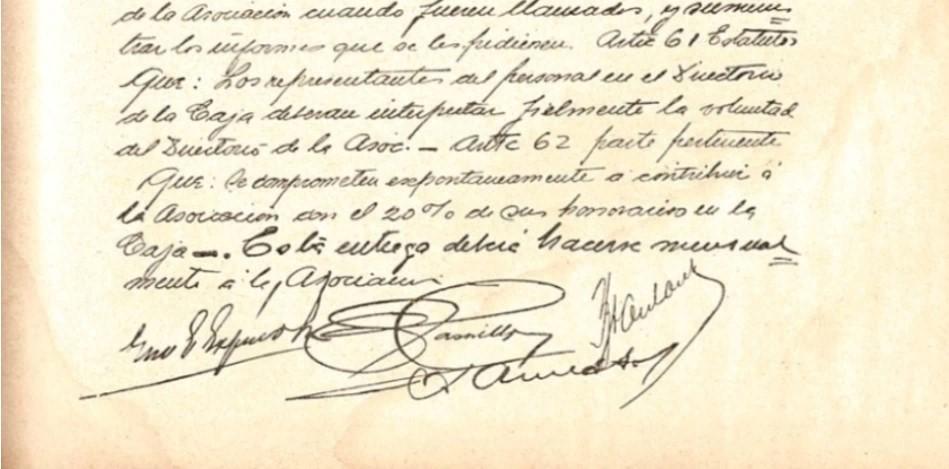 de la Asociación cuando fueren llamados, y sumini=
trar los informes que se les pidiesen. Artíc 61 Estatutos
Que: Los representantes del personal en el Directorio
de la Caja deberan interpretar fielmente la voluntad
del Directorio de la Asoc. — Artíc 62 parte pertinente
Que: Se comprometen expontaneamente a contribuir á
la Asociación con el 20% de sus honorarios en la
Caja —. Esta entrega deberá hacerse mensual=
mente á la Asociacion